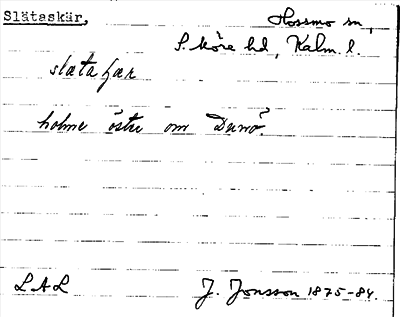 Slätaskär, Hossmo sn,
S. Möre hd, Kalm. l.
slæta
holme öster om Dunö.
LAL J. Jonsson 1875-84.